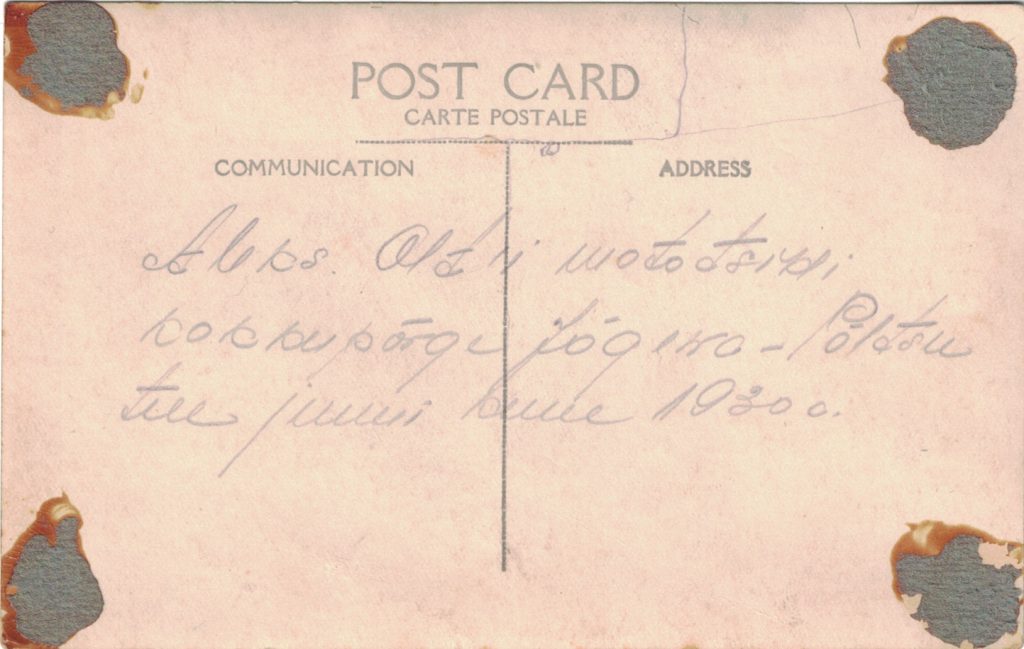 POST CARD
CARTE POSTALE
COMMUNICATION
ADDRESS
Aleks. Olt'i mototsikli
kokkupõrge Jõgeva - Põltsa
tee juuni kuue 1930 a.